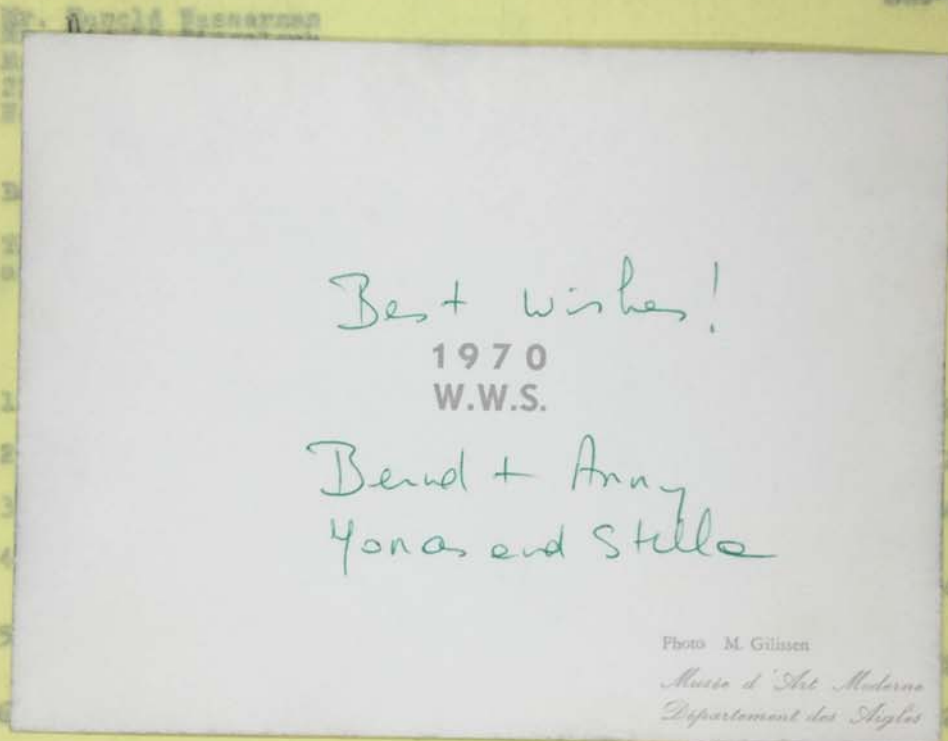 Best wishes!
1970
W.W.S.
Bernd + Anny
Yonas and Stella
Photo M. Gilissen
Musée d'Art Moderne
Département des Aigles